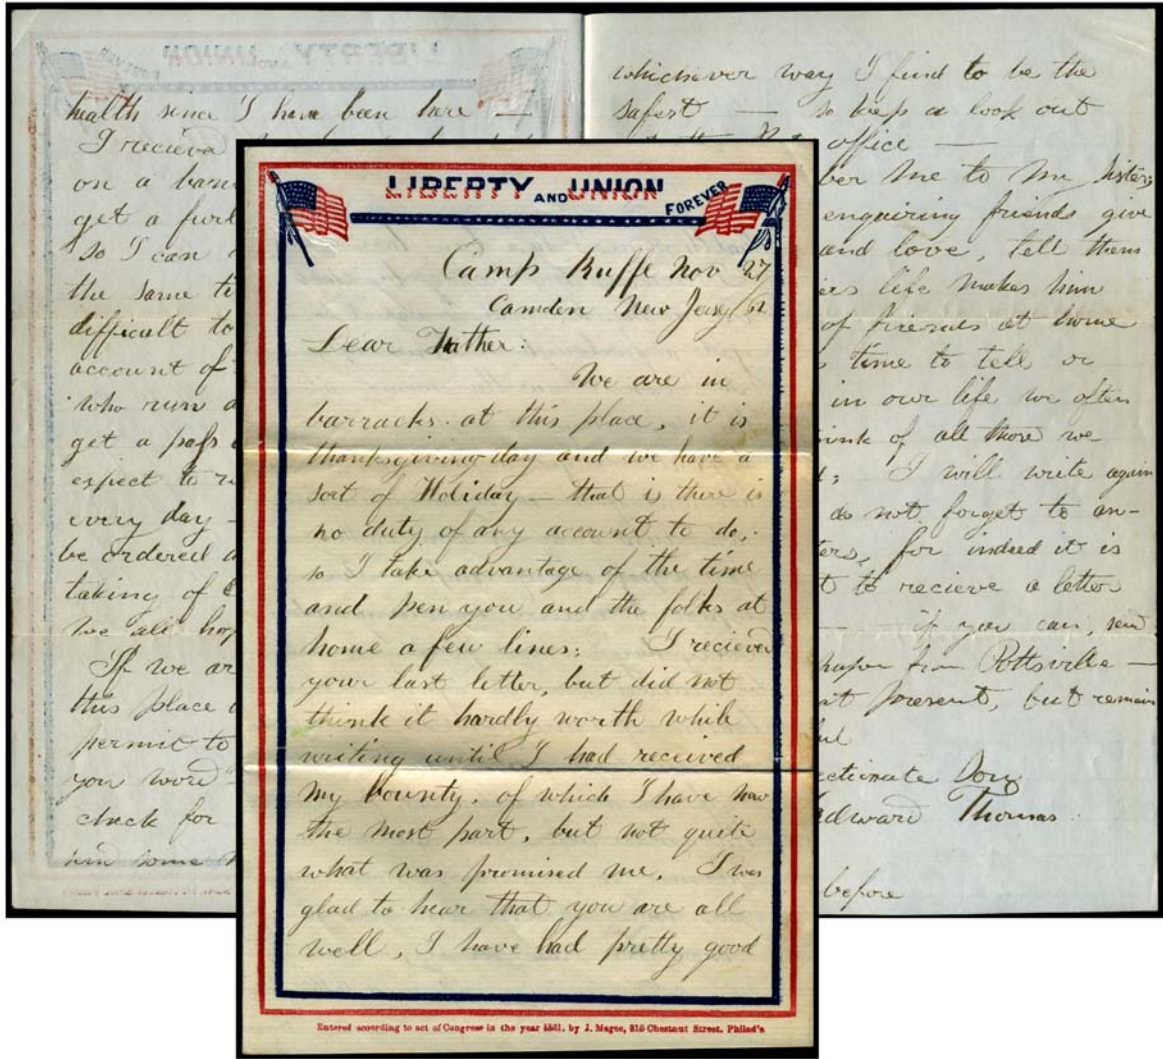 LIBERTY AND UNION FOREVER
Camp Ruffe Nov 27
Camden New Jersey / 62
Dear Father:
We are in
barracks. at this place, it is
thanksgiving day and we have a
sort of Holiday — that is there is
no duty of any account to do,
so I take advantage of the time
and pen you and the folks at
home a few lines; I recieved
your last letter, but did not
think it hardly worth while
writing until I had received
my bounty, of which I have now
the most part, but not quite
what was promised me, I was
glad to hear that you are all
well, I have had pretty good
Entered according to act of Congress in the year 1861, by J. Magee, 316 Chestnut Street, Philad'a
health since I have been here —
I recieve
on a
get a
so I can
the same
difficult to
account of
who run
get a pass
expect to
every day —
be ordered
taking of
we all
If we
this place
permit to
you word
check for
some
whichever way I find to be the
safest — so keep a look out
office —
me to my sisters
enquiring friends give
and love, tell them
life makes him
of friends at home
time to tell or
in our life we often
of all those we
I will write again
do not forget to an-
for indeed it is
to recieve a letter
— if you can, send
from Pottsville —
at present, but remain
Thomas
before